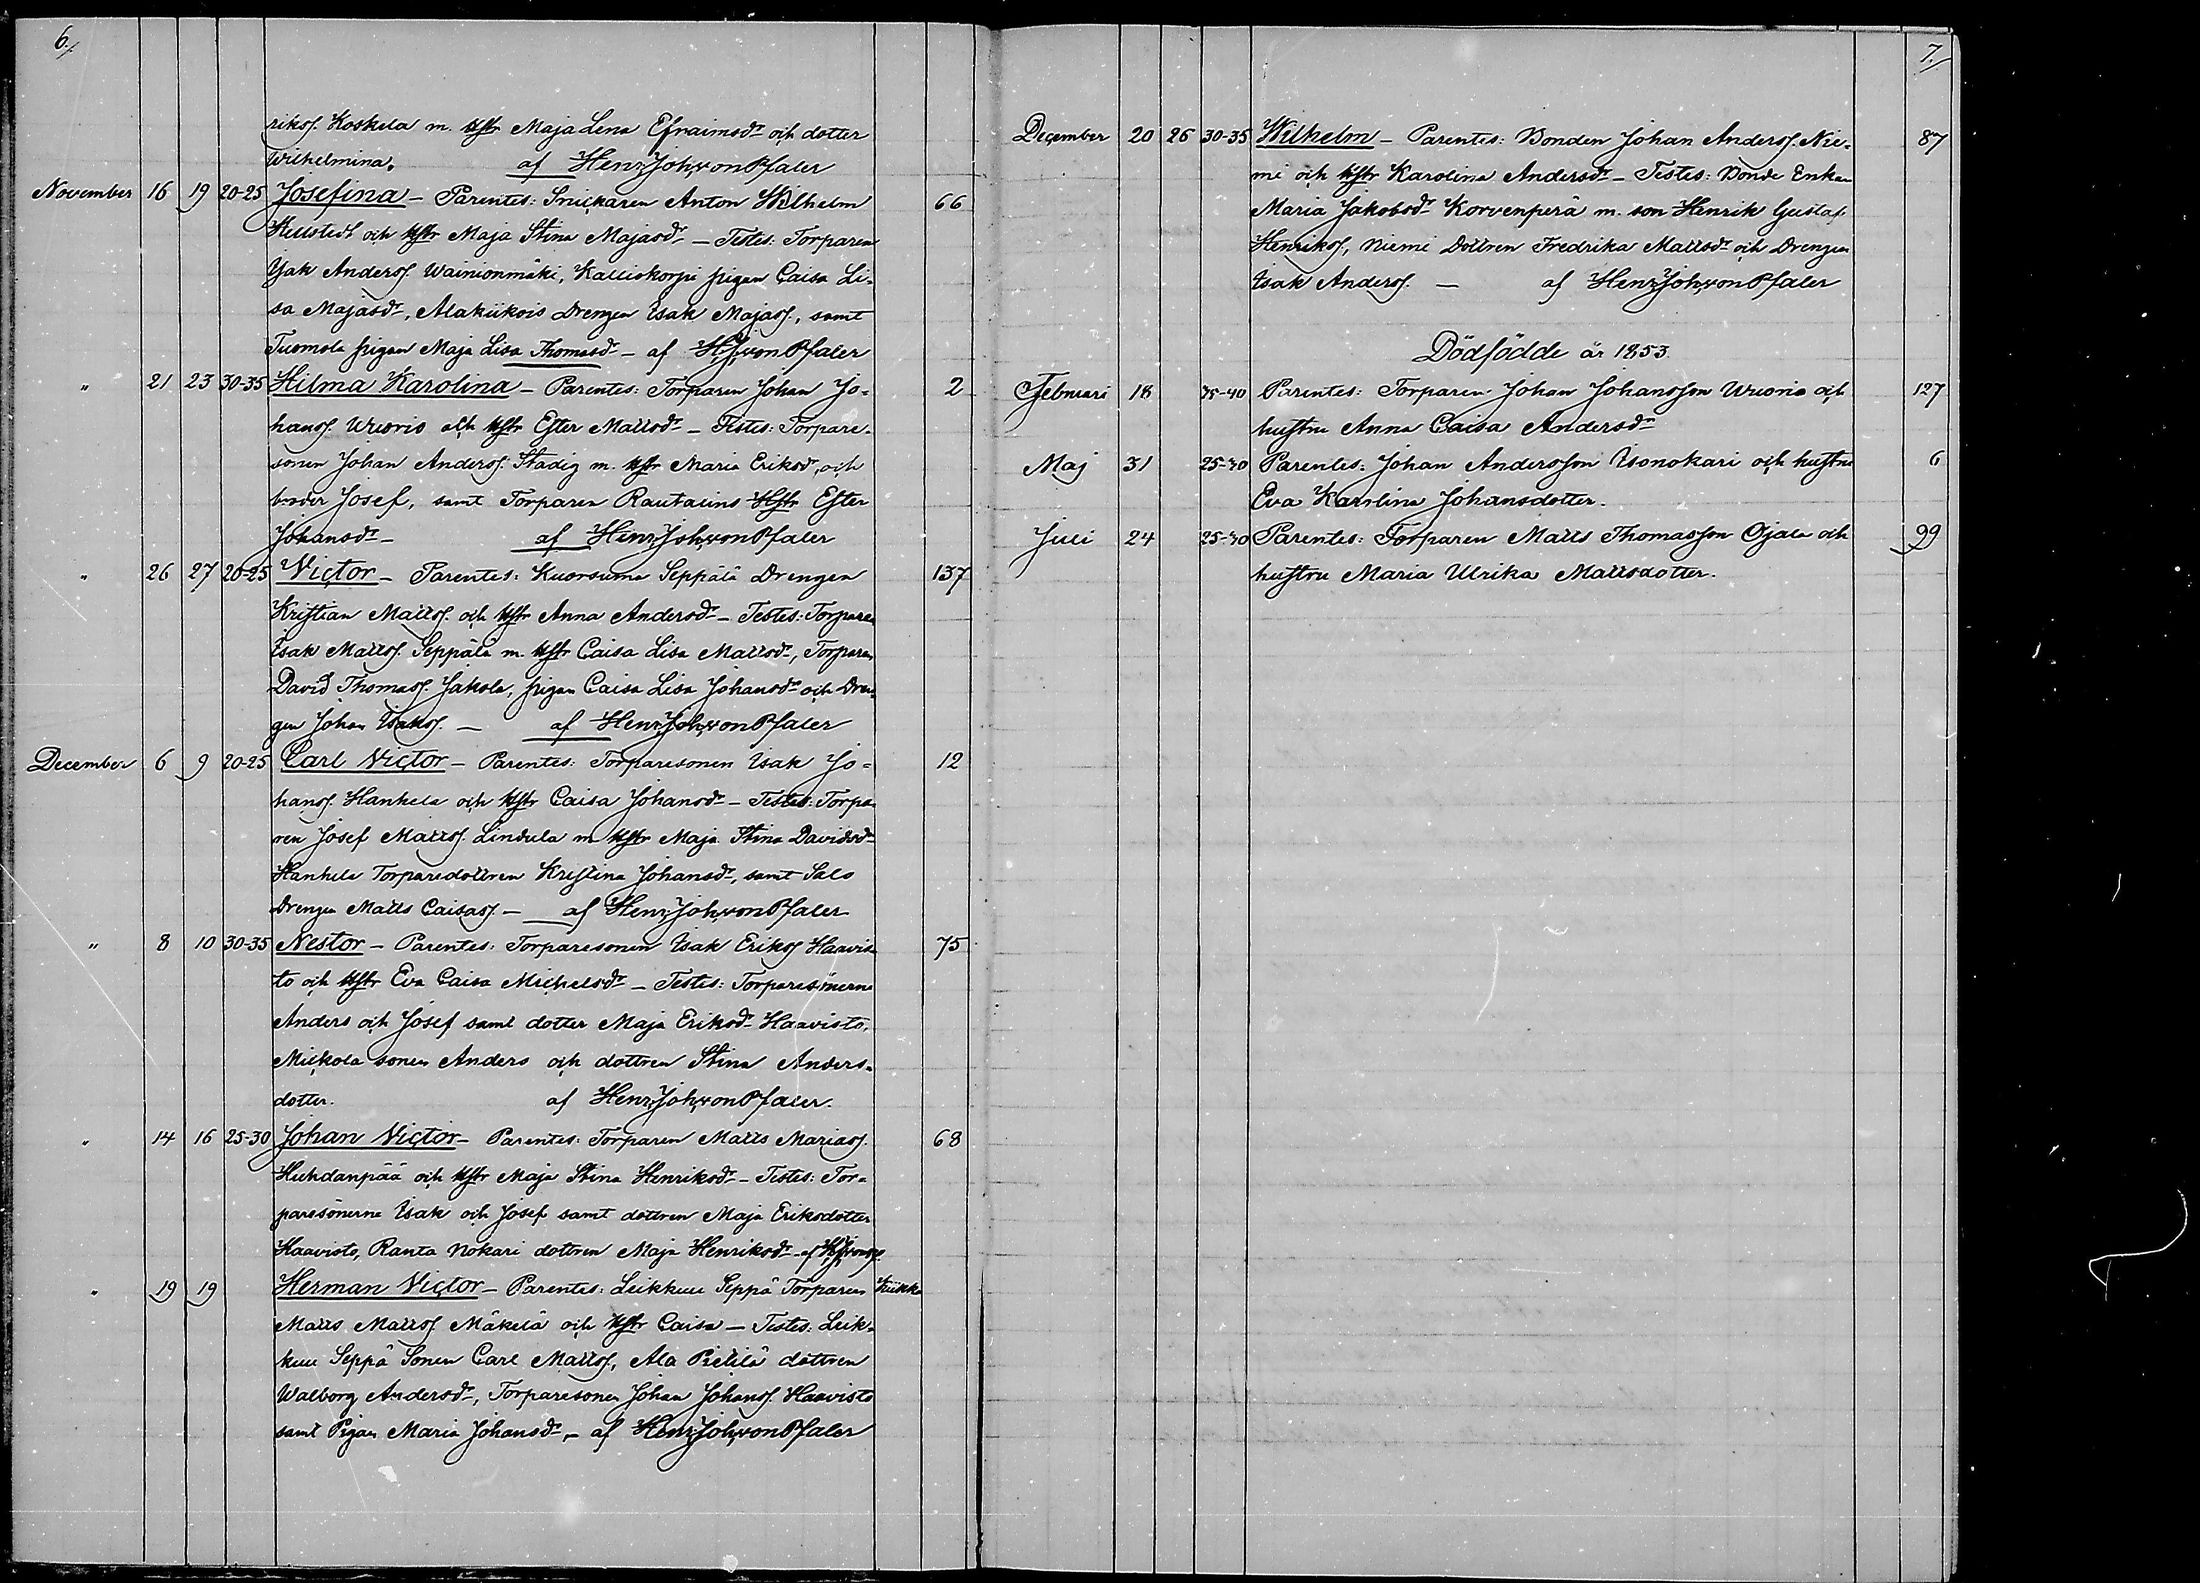 6./
riksſ. Koskela m. Hſtr Maja Lena Efraimsdr och dotter
Wilhelmina. af Henr. Joh. von Pfaler
November 16 19 20-25 Josefina - Parentes: Snickaren Anton Wilhelm 66
Hellstedt och Hſtr Maja Stina Majasdr - Testes: Torparen
Isak Andersſ. Wainionmäki, Kalliokorpi pigan Caisa Li-
sa Majasdr, Alakiikois Drengen Isak Majasſ., samt
Tuomola pigan Maja Lisa Thomasdr - af H. J. von Pfaler
" 21 23 30-35 Hilma Karolina - Parentes: Torparen Johan Jo- 2
hansſ. Wuorio och Hſtr Ester Mattsdr - Testes: Torpare-
sonen Johan Andersſ. Stadig m. Hſtr Maria Eriksdr, och
broder Josef, samt Torparen Rautalins Hſtr Ester
Johansdr - af Henr. Joh. von Pfaler
" 26 27 20-25 Victor - Parentes: Kuorsuma Seppälä Drengen 137
Kristian Mattsſ. och Hſtr Anna Andersdr - Testes: Torparen
Isak Mattsſ. Seppälä m. Hſtr Caisa Lisa Mattsdr, Torparen
David Thomasſ. Jakola, pigan Caisa Lisa Johansdr och Dren-
gen Johan Isaksſ. - af Henr. Joh. von Pfaler
December 6 9 20-25 Carl Victor - Parentes: Torparesonen Isak Jo- 12
hansſ. Hankela och Hſtr Caisa Johansdr - Testes: Torpa-
ren Josef Mattsſ. Lindula m Hſtr Maja Stina Davidsdr
Hankela Torparedottren Kristina Johansdr, samt Salo
Drengen Matts Caisasſ. - af Henr. Joh. von Pfaler
" 8 10 30-35 Nestor - Parentes: Torparesonen Isak Eriksſ Haavis- 75
to och Hſtr Eva Caisa Michelsdr - Testes: Torparesönerne
Anders och Josef samt dotter Maja Eriksdr Haavisto,
Mickola sonen Anders och dottren Stina Anders-
dotter. af Henr. Joh. von Pfaler.
" 14 16 25-30 Johan Victor - Parentes: Torparen Matts Mariasſ. 68
Huhdanpää och Hſtr Maja Stina Henriksdr - Testes: Tor-
paresönerne Isak och Josef samt dottren Maja Eriksdotter
Haavisto, Ranta Nokari dottren Maja Henriksdr - af H. J. von Pf.
" 19 19 Herman Victor - Parentes: Leikkuu Seppä Torparen Kiikka
Matts Mattsſ Mäkelä och Hſtr Caisa - Testes: Leik-
kuu Seppä Sonen Carl Mattsſ, Ala Pietilä dottren
Walborg Andersdr, Torparesonen Johan Johansſ. Haavisto
samt Pigan Maria Johansdr, - af Henr. Joh. von Pfaler
7./
December 20 26 30-35 Wilhelm - Parentes: Bonden Johan Andersſ. Nie- 87
mi och Hſtr Karolina Andersdr - Testes: Bonde Enkan
Maria Jakobsdr Korvenperä m. son Henrik Gustaf
Henriksſ, Niemi Dottren Fredrika Mattsdr och Drengen
Isak Andersſ. - af Henr. Joh. von Pfaler
Dödfödde år 1853.
Februari 18 35-40 Parentes: Torparen Johan Johansſon Wuorio och 127
huſtru Anna Caisa Andersdr
Maj 31 25-30 Parentes: Johan Andersſon Isonokari och huſtru 6
Eva Karolina Johansdotter.
Juli 24 25-30 Parentes: Torparen Matts Thomasſon Ojala och 99
huſtru Maria Ulrika Mattsdotter.